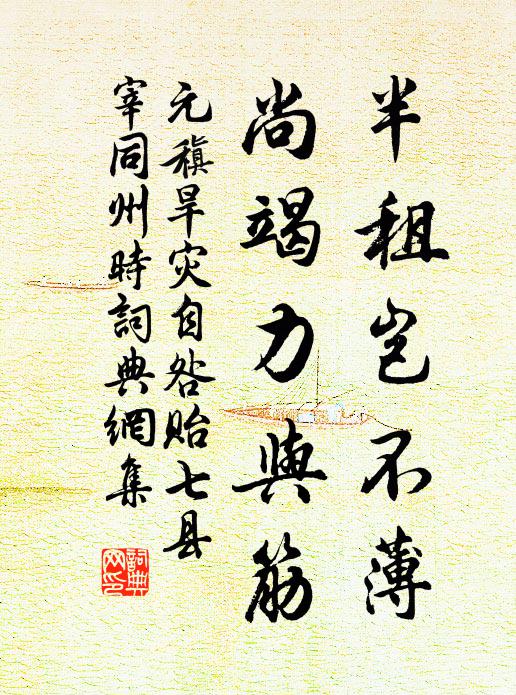 半租岂不薄
尚竭力與筋
元稹旱灾自咎贻七县
宰同州時詞典網集
詞典
网印